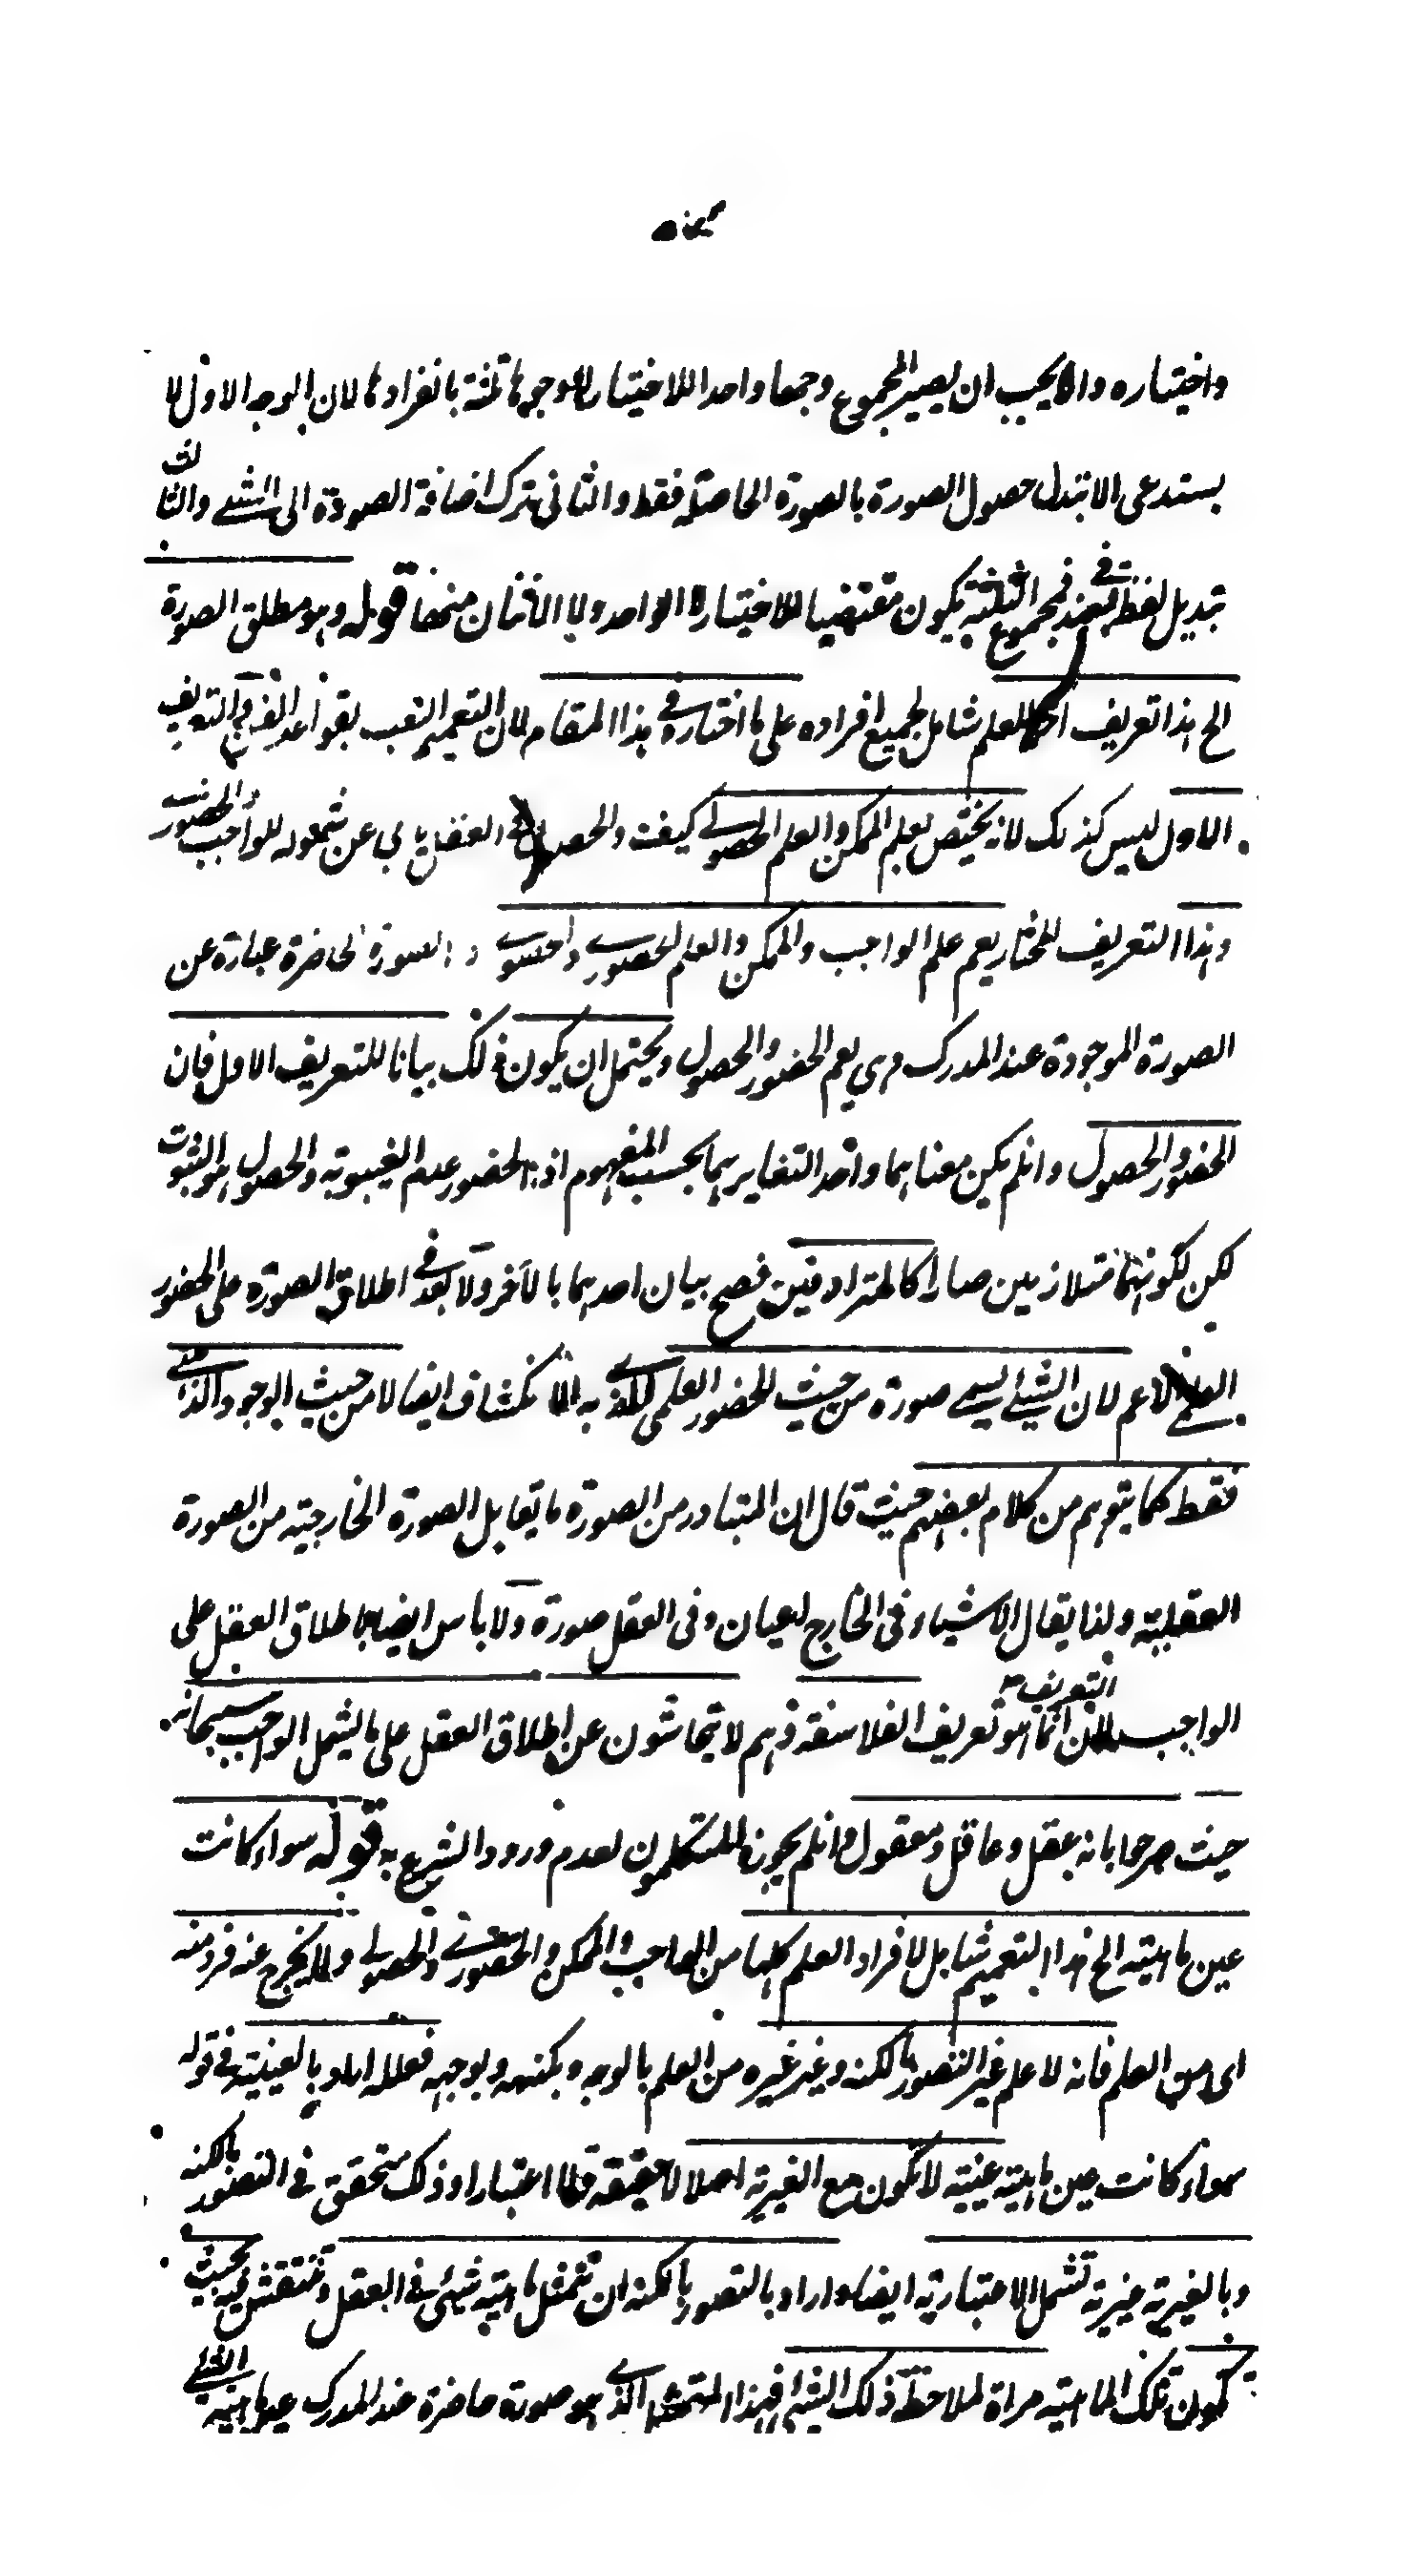 واختياره وانما يجب ان يصير المجموع وجها واحدا للاختيار لا وجوها ثلثة بانفرادها لان الوجه الاول لا
يستدعى الا تبدل حصول الصورة بالصورة الحاصلة فقط والثانى ترك اضافة الصورة الى الشئ والثالث
تبديل لفظ عند بفى فمجموع الثلثة يكون مقتضيا للاختيار الواحد ولا الاثنان منها قوله وهو مطلق الصورة
الخ هذا تعريف للعلم شامل لجميع افراده على ما اختاره فى هذا المقام لان التعميم انسب بقواعد الفن والتعريف
الاول ليس كذلك لانه يختص بعلم الممكن والعلم الحصولى كيف والحصول فى العقل يابى عن شموله للواجب والحضورى
وهذا التعريف المختار يعم علم الواجب والممكن والعلم الحضورى والحصولى الصورة الحاضرة عبارة عن
الصورة الموجودة عند المدرك وهى يعم الحضور والحصول ويحتمل ان يكون ذلك بيانا للتعريف الاول فان
الحضور والحصول وانلم يكن معناهما واحدا لتغايرهما بحسب المفهوم اذ الحضور عدم الغيبوبة والحصول هو الثبوت
لكن لكونهما متلازمين صارا كالمترادفين فصح بيان احدهما بالآخر ولا بعد فى اطلاق الصورة على الحضور
الاعم لان الشئ يسمى صورة من حيث الحضور العلمى الذى به الانكشاف ايضا لا من حيث الوجود الذهنى
فقط كما يتوهم من كلام بعضهم حيث قال ان المتبادر من الصورة ما يقابل الصورة الخارجية من الصورة
العقلية ولذا يقال الاشياء فى الخارج اعيان وفى العقل صورة ولا باس ايضا باطلاق العقل على
الواجب لان التعريف انما هو تعريف الفلاسفة وهم لا يتحاشون عن اطلاق العقل على ما يشمل الواجب سبحانه
حيث صرحوا بانه عقل وعاقل ومعقول وانلم يجوزه المتكلمون لعدم ورود الشرع به قوله سواء كانت
عين ماهيته الخ هذا التعميم شامل لافراد العلم كلها من الواجب والممكن والحضورى والحصولى ولا يخرج عنه فرد منه
اى من العلم فانه لا علم غير التصور بالكنه وغير غيره من العلم بالوجه وبكنهه وبوجهه فلعله اراد بالعينية فى قوله
سواء كانت عين ماهيته عينية لا تكون مع الغيرية اصلا لا حقيقة ولا اعتبارا وذلك متحقق فى التصور بالكنه
وبالغيرية غيرية تشمل الاعتبارية ايضا واراد بالتصور بالكنه ان تتمثل ماهية شئ فى العقل وتنتقش فيه بحيث
تكون تلك الماهية مراة لملاحظة ذلك الشئ فهذا المتمثل الذى هو صورة حاضرة عند المدرك عين ماهية الشئ